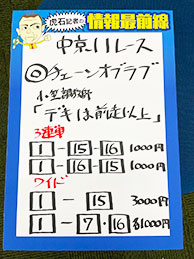 虎石記者の
情報最前線
中京11レース
◎チェーンオブラブ
小笠調教師
「デキは前走以上」
3連単
1-15-16 1000円
1-16-15 1000円
ワイド
1-15 3000円
1-7・16 各1000円